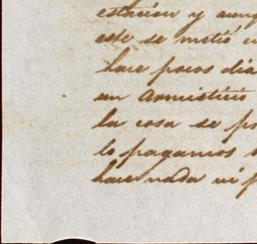 estacion y aunq
este se metió e
hace pocos dia
un armisticio
la cosa se pr
lo pagamos
hace nada ni p